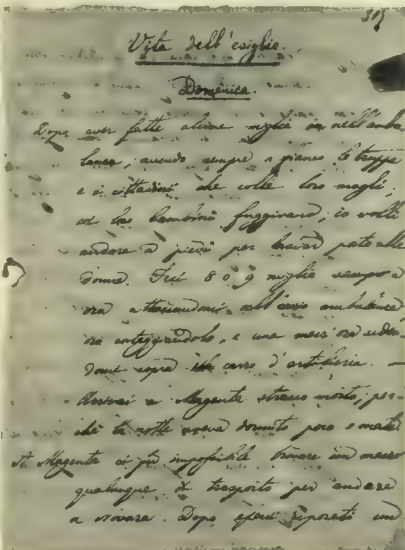 317
Vita dell'esiglio.
Domenica.
Dopo aver fatte alcune miglia in nell'ambu
lanza, avendo sempre a fianco le truppe
e i cittadini che colle loro mogli,
coi loro bambini fuggivano, io volli
andare a piedi per lasciar posto alle
donne. Feci 8 o 9 miglia sempre
ora attaccandomi all'ambulanza
ora, e una mezz'ora seden
domi sopra un carro d'artiglieria. —
Arrivai a Magenta stracco morto, per-
chè la notte aveva dormito poco e male
A Magenta ci fu impossibile trovare un mezzo
qualunque di trasporto per andare
a Novara. Dopo esserci riposati un